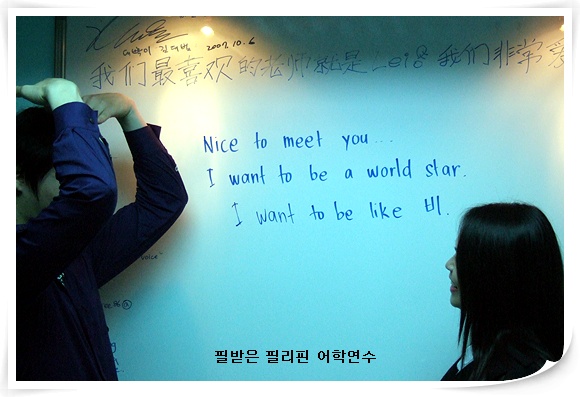 대박이 김대범 2007.10.6
我们最喜欢的老师就是Leig 我们非常爱
Nice to meet you...
I want to be a world star.
I want to be like 비.
voice"
필받은 필리핀 어학연수